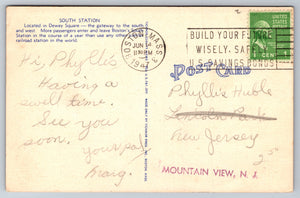 SOUTH STATION
Located in Dewey Square — the gateway to the south
and west. More passengers enter and leave Boston
Station in the course of a year than use any other
railroad station in the world.
BOSTON, MASS.
JUN 4
PM
194
BUILD YOUR FUTURE
WISELY, SAFELY
U.S. SAVINGS BONDS
POST CARD
Hi, Phyllis
Having a
swell time.
See you
soon.
your pal
Phyllis Huble
Lincoln Park
New Jersey
MOUNTAIN VIEW, N. J.
2.50